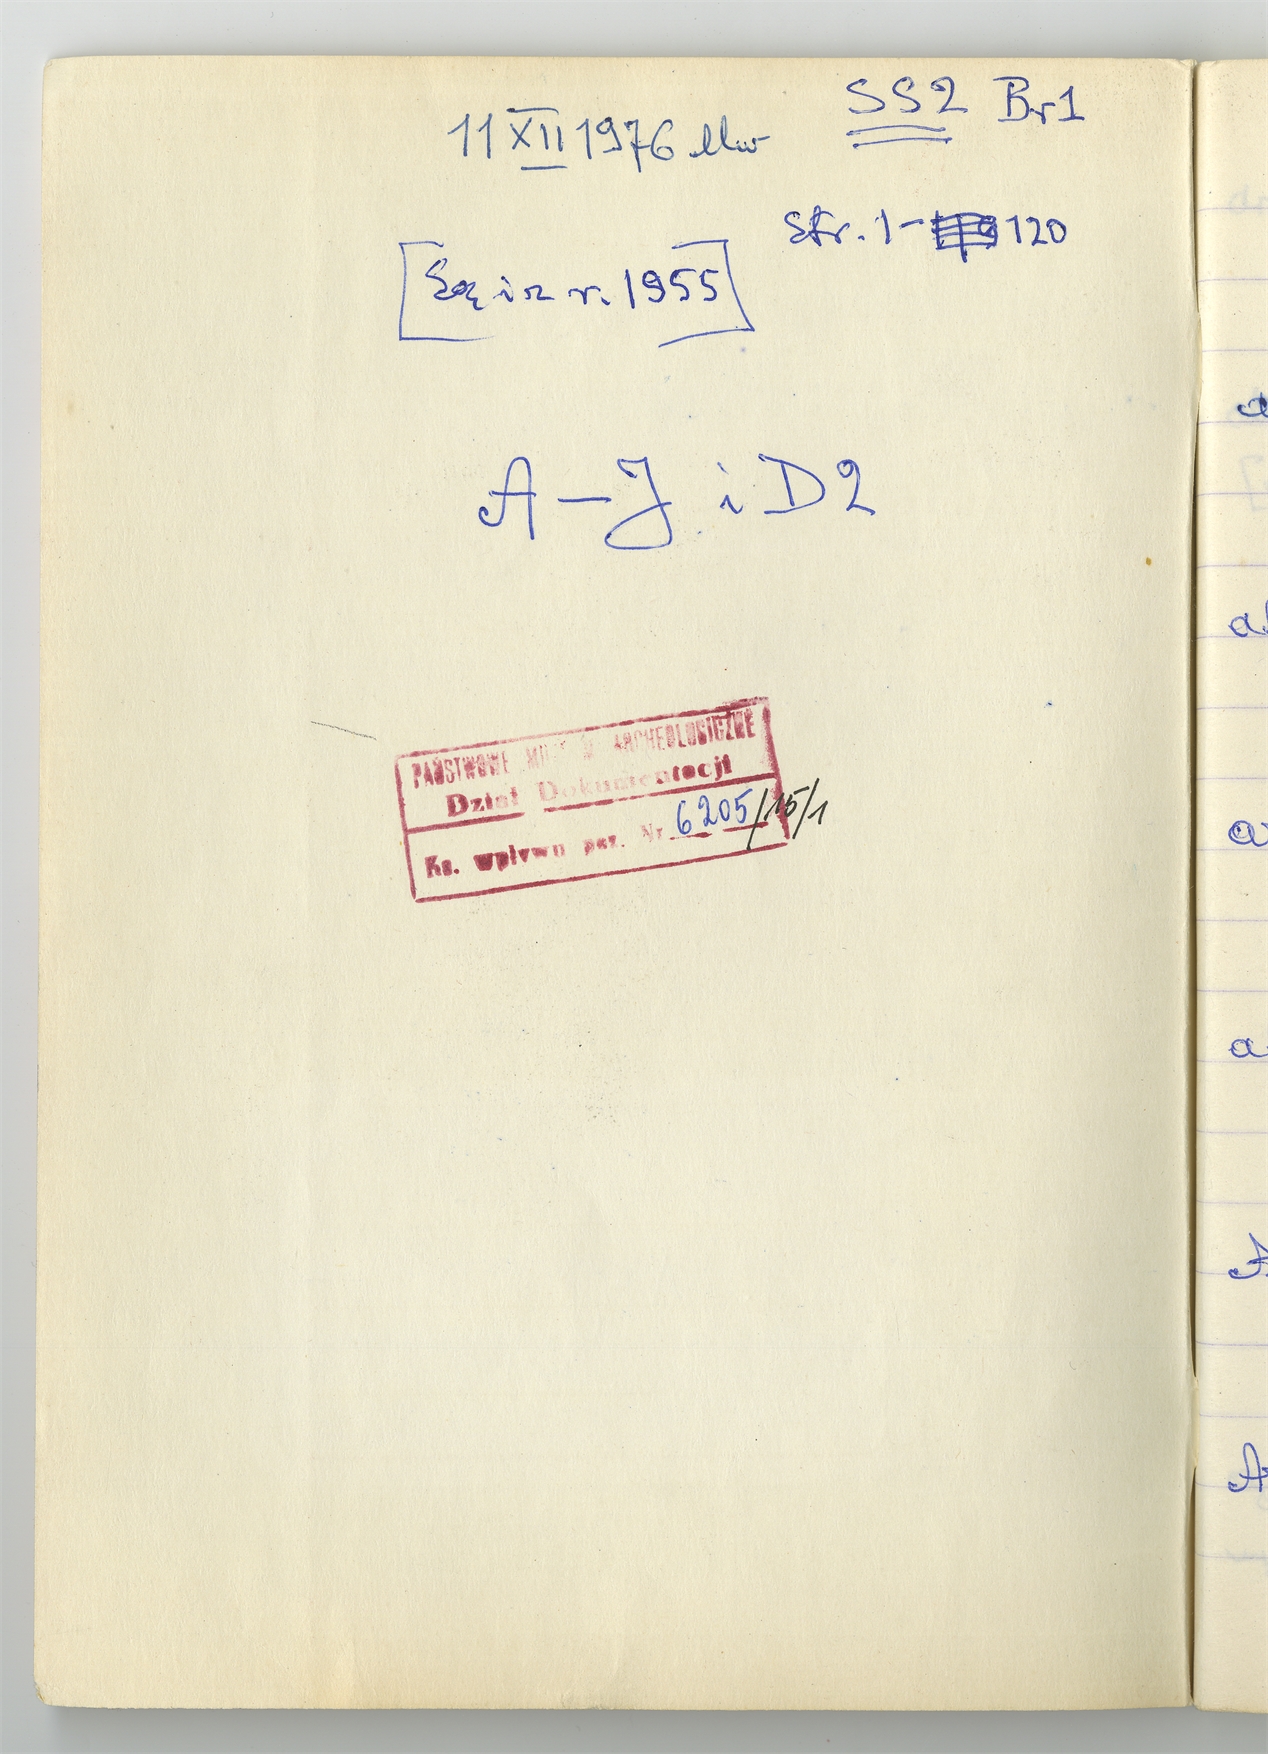 SS2 Br1
11 XII 1976
Str. 1- 120
Są i z r. 1955
A – J i D2
PAŃSTWOWE MUZEUM ARCHEOLOGICZNE
Dział Dokumentacji
Ks. wpływu poz. Nr 6205/15/1
a
a
a
A